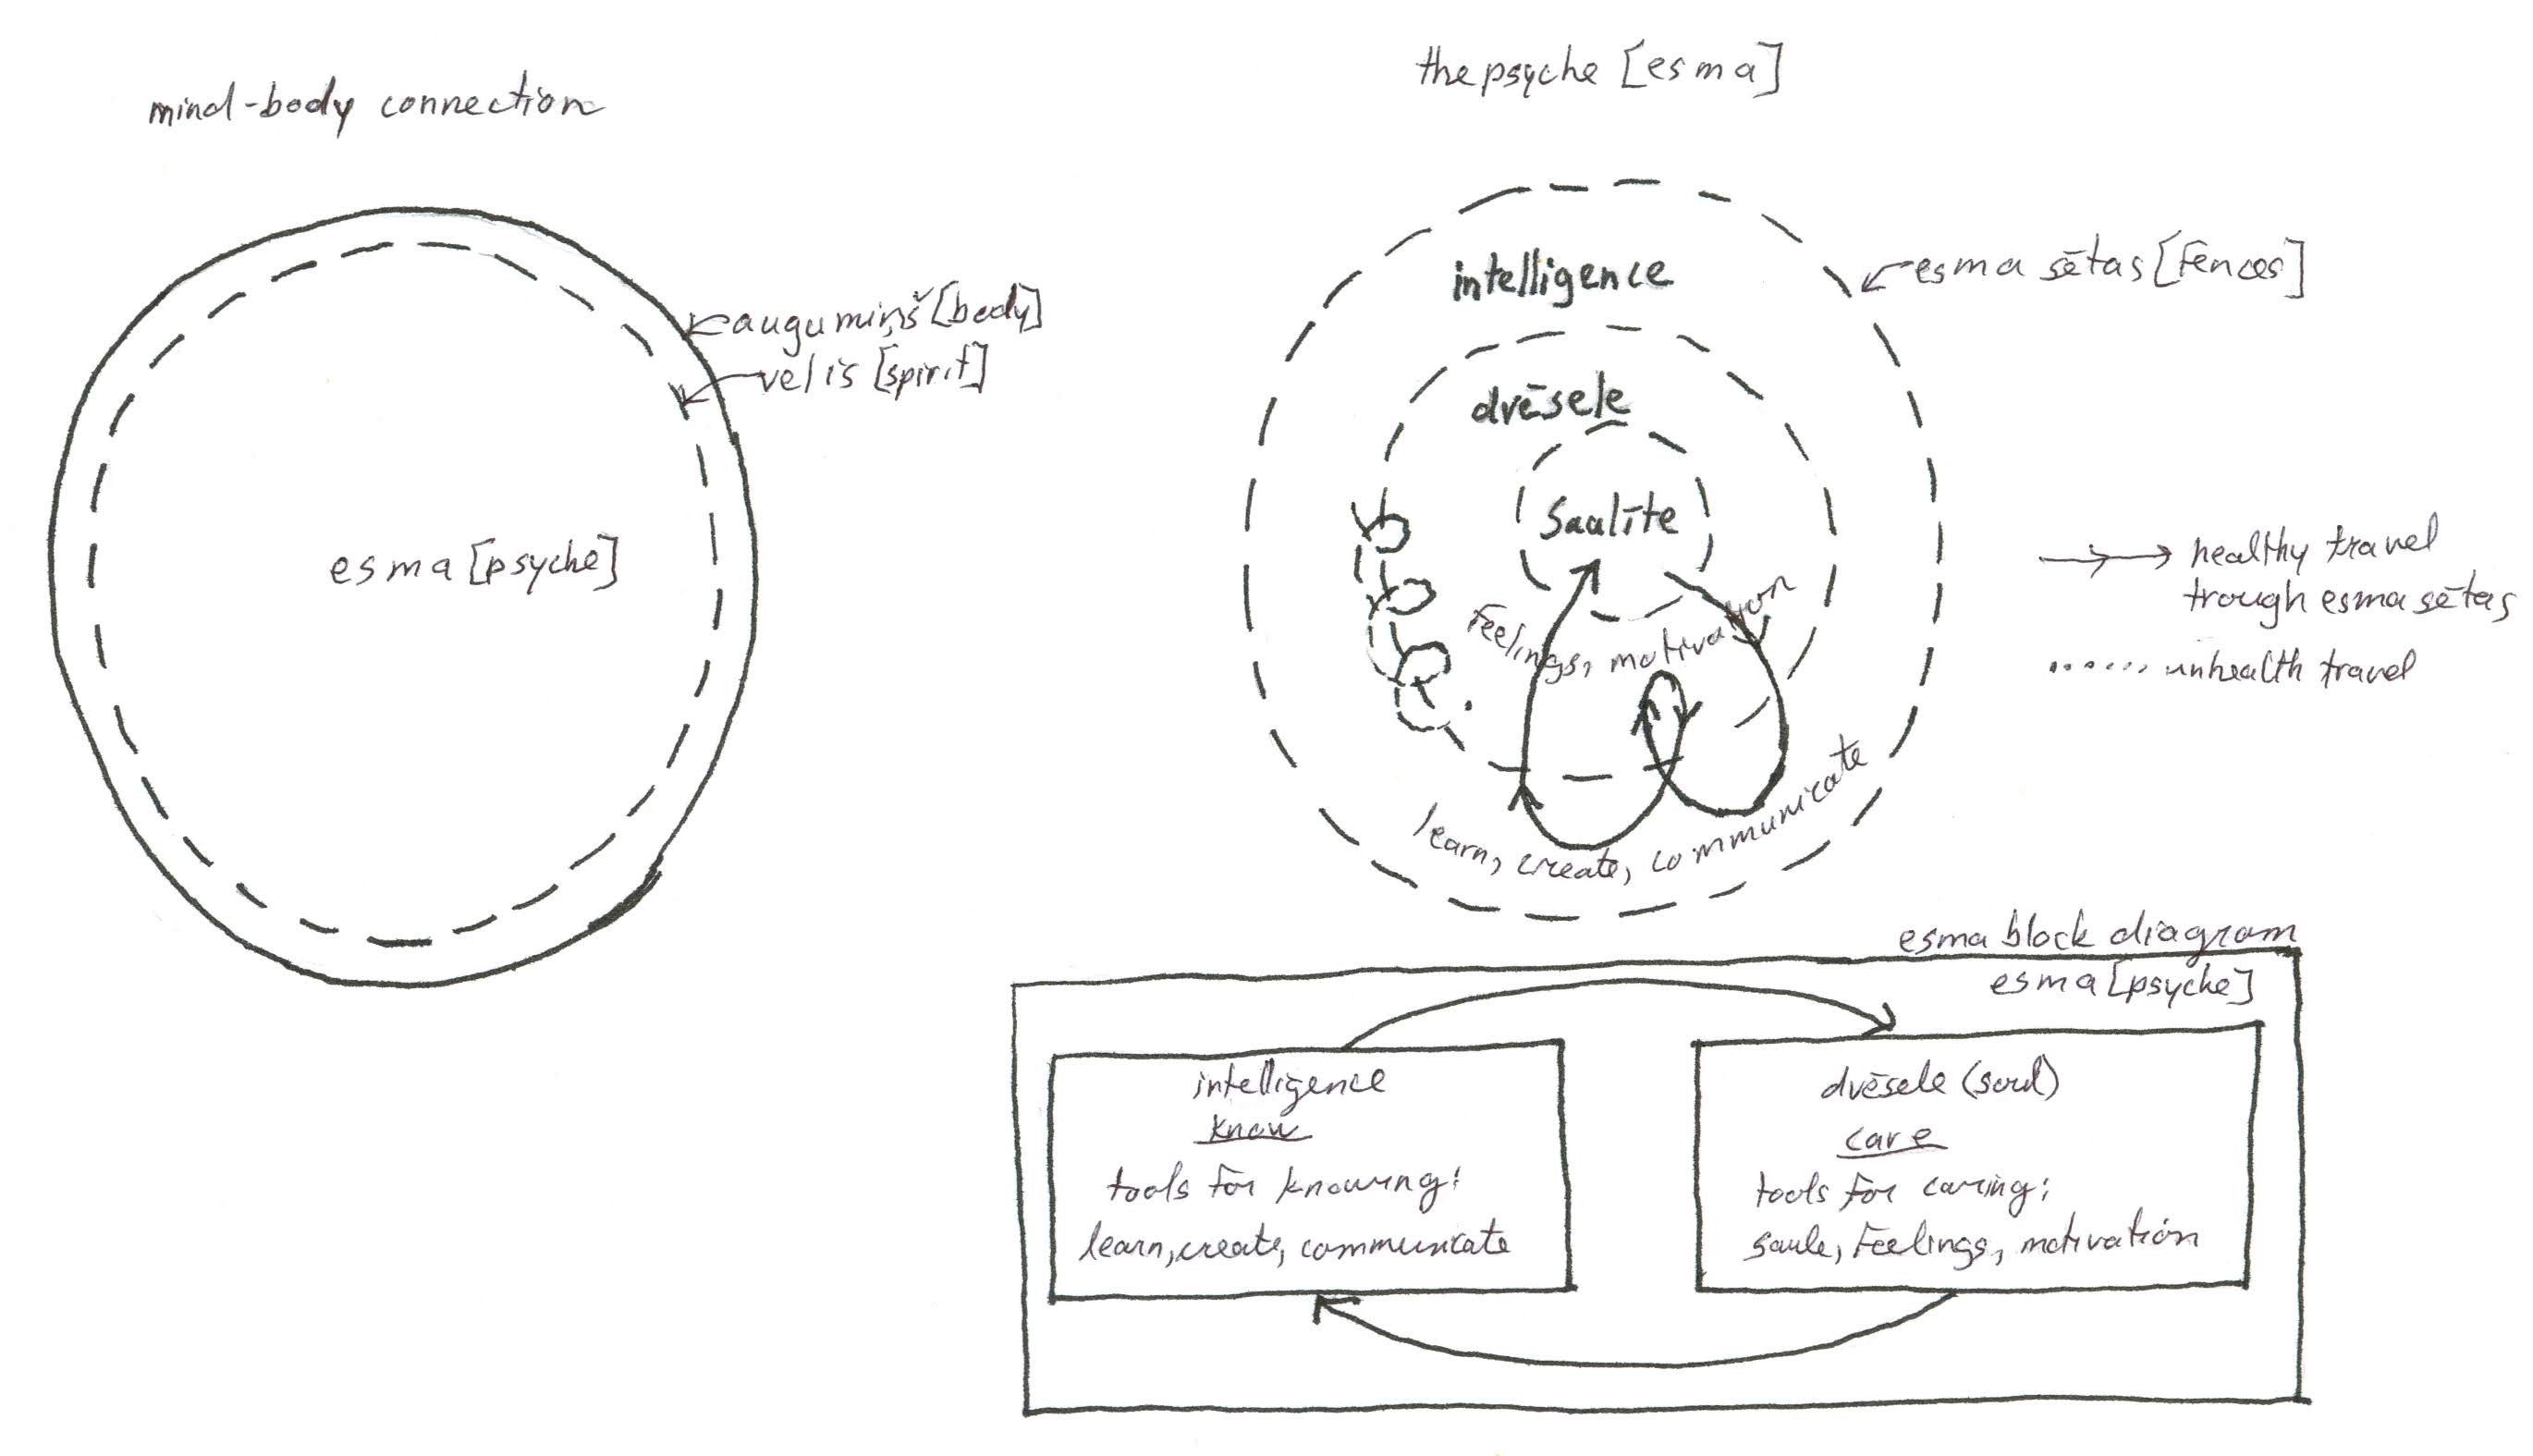 mind-body connection
augumiņš [body]
velis [spirit]
esma [psyche]
the psyche [esma]
intelligence
esma sētas [fences]
dvēsele
Saulīte
Feelings, motivation
learn, create, communicate
healthy travel
trough esma sētas
unhealth travel
esma block diagram
esma [psyche]
intelligence
know
tools for knowing:
learn, create, communicate
dvēsele (soul)
care
tools for caring:
saule, feelings, motivation